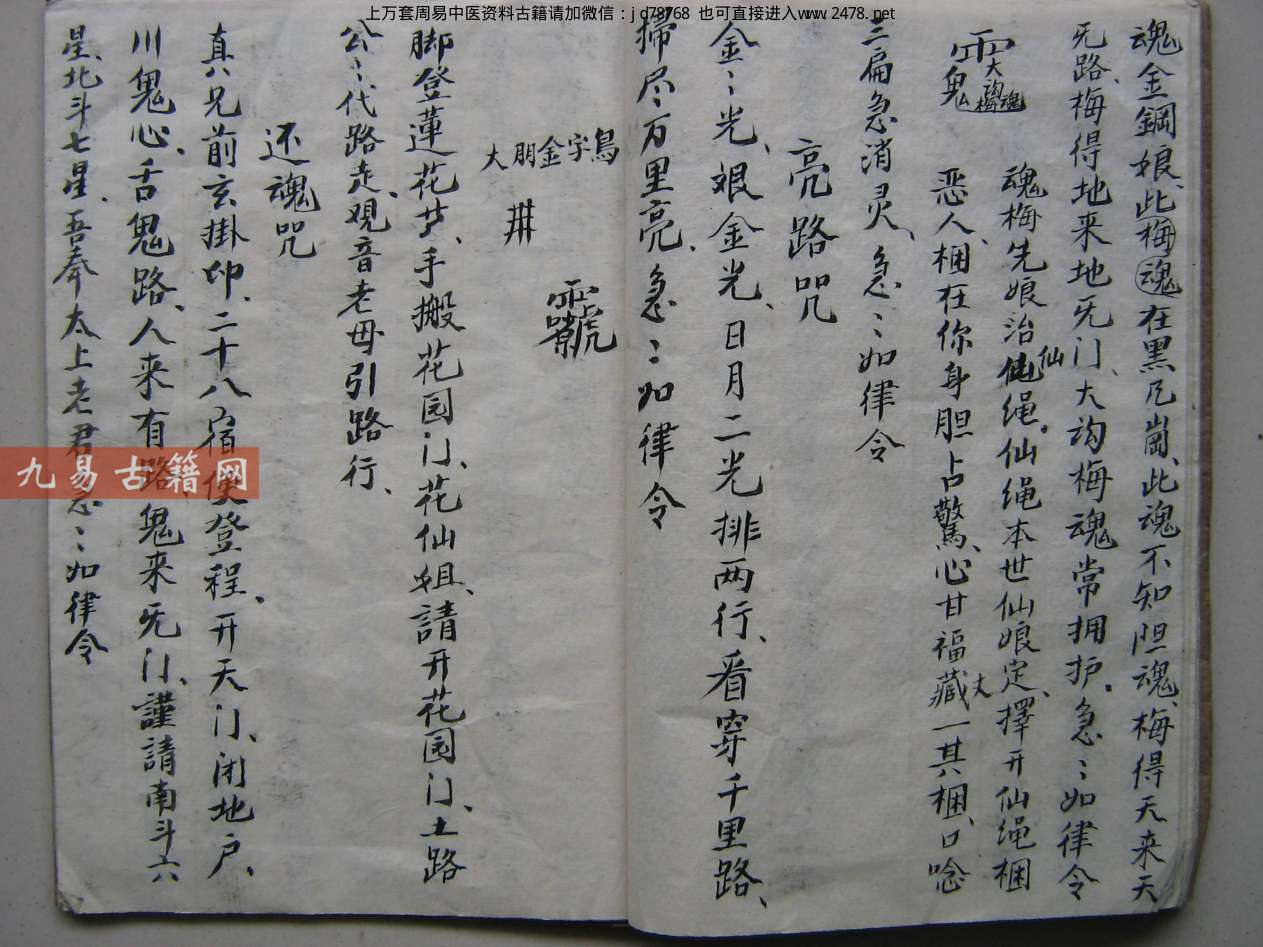 上万套周易中医资料古籍请加微信：jd78768 也可直接进入www.2478.net
魂金鋼娘、此梅魂在黑凡崗、此魂不知胆魂、梅得天来天
旡路、梅得地来地旡门、大沟梅魂常拥护。急〻如律令
魂梅先娘治仙绳。仙绳本世仙娘定、擇开仙绳梱
恶人、梱在你身胆占驚、心甘福藏一其梱、口唸
三扁急消灵、急〻如律令
亮路咒
金〻光、艮金光、日月二光排两行、看穿千里路、
掃尽〻万里亮、急〻如律令
大朋金字鳥
脚登蓮花芦、手搬花园门、花仙姐、請开花园门、土路
公〻代路走、观音老母引路行、
还魂咒
真八兄前玄掛印、二十八宿便登程、开天门、闭地户、
川鬼心、舌鬼路、人来有路、鬼来旡门、謹請南斗六
星、北斗七星、吾奉太上老君急〻如律令
九易古籍网